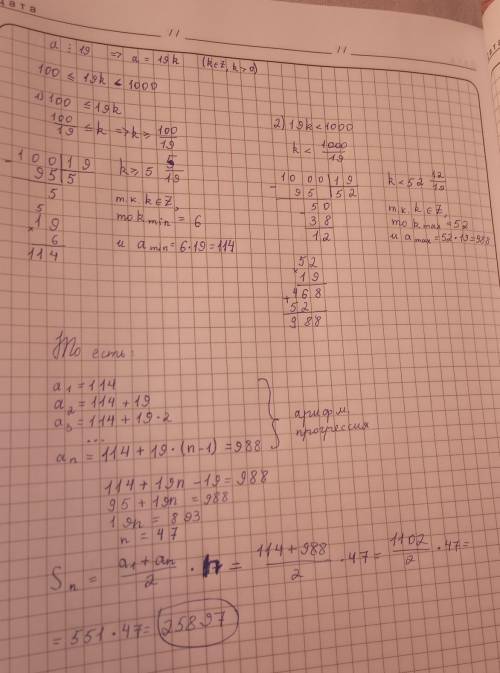 Дата
a ⋮ 19 => a = 19k (k∈Z, k>0)
100 ≤ 19k < 1000
1) 100 ≤ 19k
100/19 ≤ k => k ≥ 100/19
k ≥ 5 5/19
100 | 19
95 | 5
5
т.к. k∈Z,
то k min = 6
и a min = 6·19 = 114
5
19
× 6
114
2) 19k < 1000
k < 1000/19
1000 | 19
95 | 52
50
38
12
k < 52 12/19
т.к. k∈Z,
то k max = 52
и a max = 52·19 = 988
52
× 19
468
+ 52
988
То есть:
a1 = 114
a2 = 114 + 19
a3 = 114 + 19·2
...
an = 114 + 19·(n-1) = 988
арифм.
прогрессия
114 + 19n - 19 = 988
95 + 19n = 988
19n = 893
n = 47
Sn = (a1 + an)/2 · n = (114 + 988)/2 · 47 = 1102/2 · 47 =
= 551 · 47 = 25897